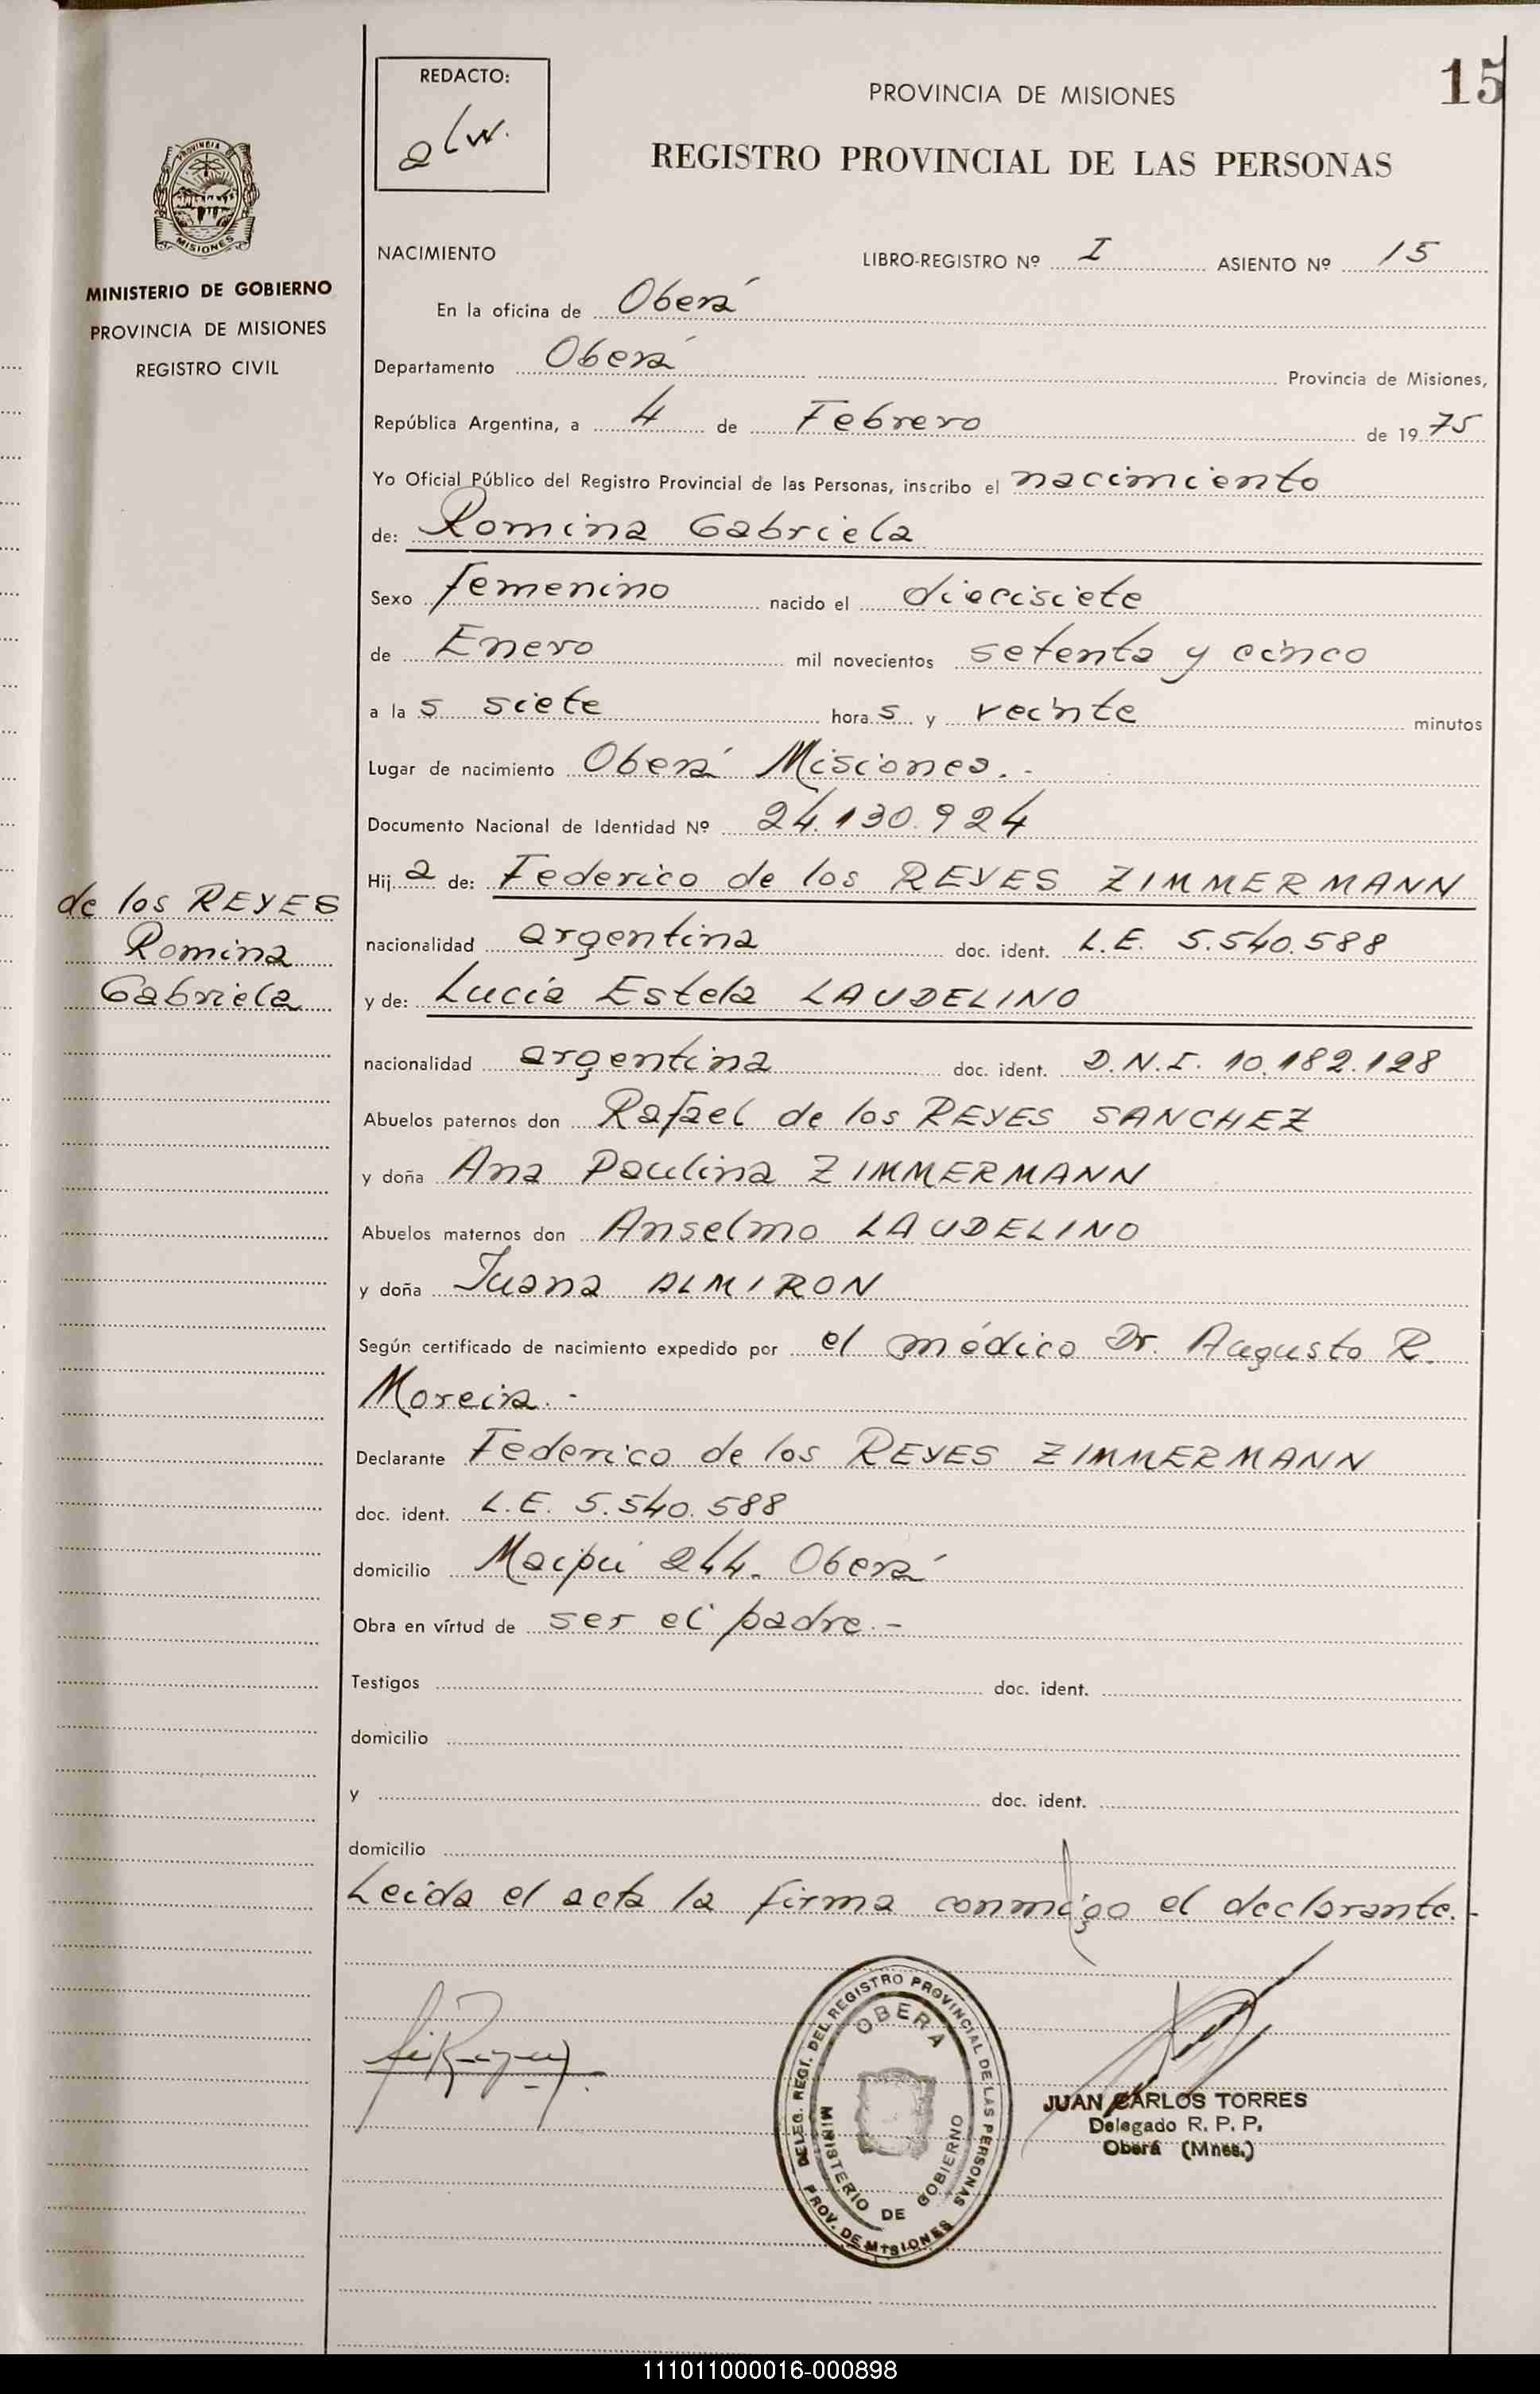 REDACTO:
alw.
PROVINCIA DE MISIONES
15
REGISTRO PROVINCIAL DE LAS PERSONAS
PROVINCIA DE
MISIONES
MINISTERIO DE GOBIERNO
PROVINCIA DE MISIONES
REGISTRO CIVIL
NACIMIENTO LIBRO-REGISTRO Nº I ASIENTO Nº 15
En la oficina de Oberá
Departamento Oberá Provincia de Misiones,
República Argentina, a 4 de Febrero de 19 75
Yo Oficial Público del Registro Provincial de las Personas, inscribo el nacimiento
de: Romina Gabriela
Sexo femenino nacido el diecisiete
de Enero mil novecientos setenta y cinco
a la s siete hora s y veinte minutos
Lugar de nacimiento Oberá Misiones.-
Documento Nacional de Identidad Nº 24.130.924
Hij a de: Federico de los REYES ZIMMERMANN
de los REYES
Romina
Gabriela
nacionalidad argentina doc. ident. L.E. 5.540.588
y de: Lucía Estela LAUDELINO
nacionalidad argentina doc. ident. D.N.I. 10.182.128
Abuelos paternos don Rafael de los REYES SANCHEZ
y doña Ana Paulina ZIMMERMANN
Abuelos maternos don Anselmo LAUDELINO
y doña Juana ALMIRON
Según certificado de nacimiento expedido por el médico Dr. Augusto R.
Moreira.-
Declarante Federico de los REYES ZIMMERMANN
doc. ident. L.E. 5.540.588
domicilio Maipú 244. Oberá
Obra en vírtud de ser el padre.-
Testigos doc. ident.
domicilio
y doc. ident.
domicilio
Leída el acta la firma conmigo el declarante.-
DELEG. REGI. DEL REGISTRO PROVINCIAL DE LAS PERSONAS
OBERA
MINISTERIO DE GOBIERNO
PROV. DE MISIONES
JUAN CARLOS TORRES
Delegado R. P. P.
Oberá (Mnes.)
111011000016-000898